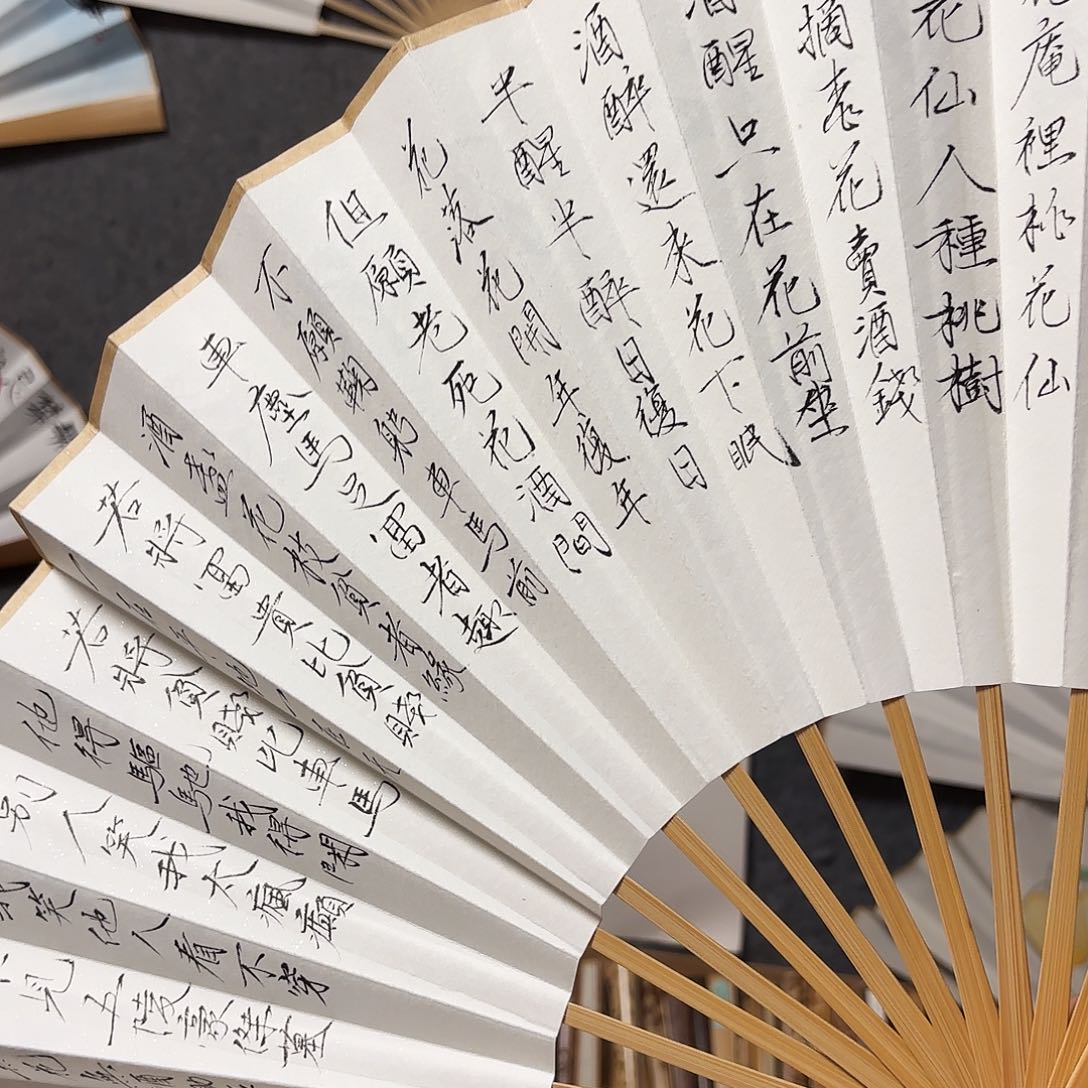 庵裡桃花仙
花仙人種桃樹
摘桃花賣酒錢
酒醒只在花前坐
酒醉還來花下眠
半醒半醉日復日
花落花開年復年
但願老死花酒間
不願鞠躬車馬前
車塵馬足富者趣
酒盞花枝貧者緣
若將富貴比貧賤
若將貧賤比車馬
他得驅馳我得閒
別人笑我太瘋癲
我笑他人看不穿
見五陵豪傑墓